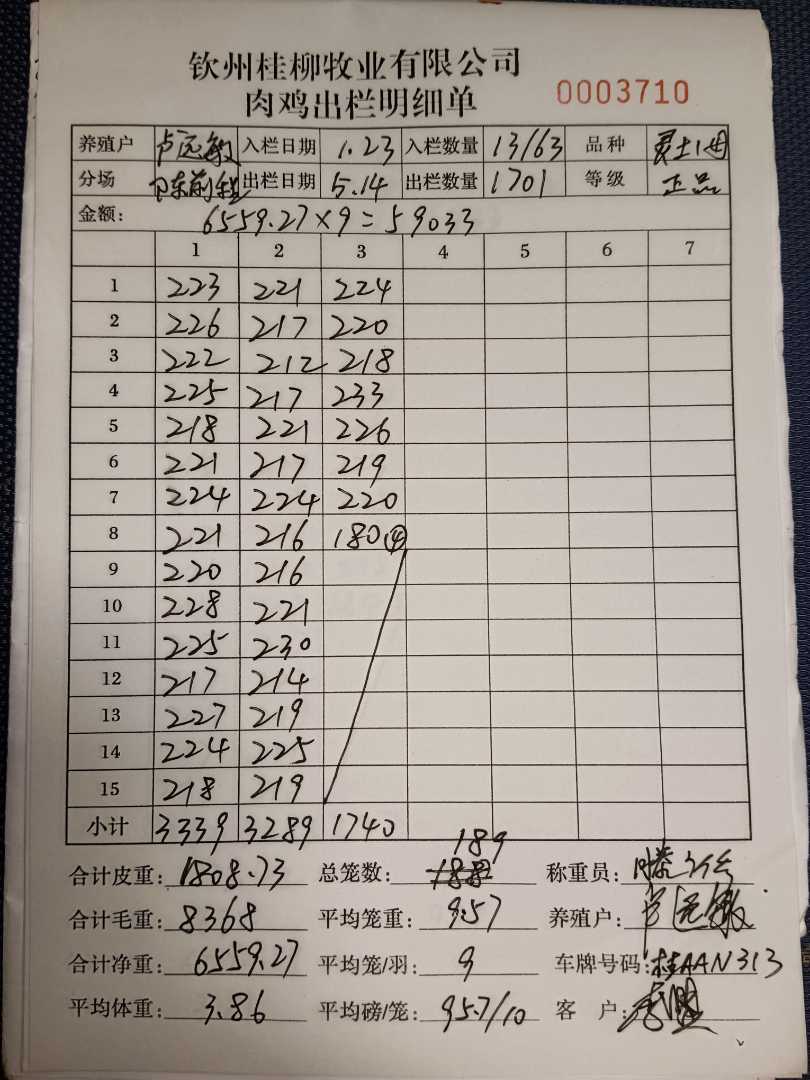 钦州桂柳牧业有限公司
肉鸡出栏明细单 0003710
养殖户 卢远敏 入栏日期 1.23 入栏数量 13163 品种
分场 出栏日期 5.14 出栏数量 1701 等级 正品
金额: 6559.27×9=59033
1 2 3 4 5 6 7
1 223 221 224
2 226 217 220
3 222 212 218
4 225 217 233
5 218 221 226
6 221 217 219
7 224 224 220
8 221 216 180④
9 220 216
10 228 221
11 225 230
12 217 214
13 227 219
14 224 225
15 218 219
小计 3339 3289 1740
合计皮重: 1808.73 总笼数: 189 称重员:
合计毛重: 8368 平均笼重: 9.57 养殖户: 卢远敏
合计净重: 6559.27 平均笼/羽: 9 车牌号码: 桂AAN313
平均体重: 3.86 平均磅/笼: 95.7/10 客户: